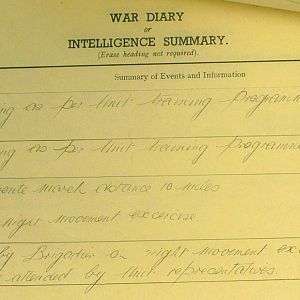 WAR DIARY
or
INTELLIGENCE SUMMARY.
(Erase heading not required).
Summary of Events and Information
ing as per Unit training Programme
ing as per Unit training Programme
march distance 10 miles
night movement excercise
by Brigadier on night movement exc
attended by Unit representatives.